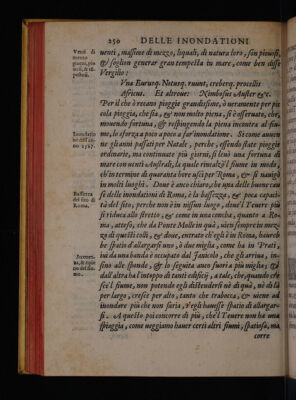 250 DELLE INONDATIONI
Venti di mezzo giorni, piovosi, & tempestosi.
uenti, massime di mezo, liquali, di natura loro, son piouosi,
& soglion generar gran tempesta in mare, come ben disse
Vergilio:
Vna Eurusq. Notusq. ruunt, creberq. procellis
Africus. Et altroue: Nimbosus Auster &c.
Per il che ò recano pioggie grandissime, ò ueramente per pic
cola pioggia, che sia, & non molto piena, si è osseruato, che,
mouendo fortuna, & respingendo la piena incontro al fiu-
me, lo sforza a poco a poco a far inondatione. Si come auuen
Inondatione dell'anno 1567.
ne gli anni passati per Natale, perche, essendo state pioggie
ordinarie, ma continuate più giorni, si leuò una fortuna di
mare con uenti Australi, la quale rincalzò il fiume in modo,
ch'in termine di quaranta hore uscì per Roma, & si nauigò
in molti luoghi. Doue è anco chiaro, che una delle buone cau
Bassezza del sito di Roma.
se delle inondationi di Roma, è la bassezza, & poca capaci-
tà del sito, perche non è in nissun luogo, doue'l Teuere più
si riduca allo stretto, & come in una concha, quanto a Ro-
ma, atteso, che da Ponte Molle in quà, uien sempre in mez-
zo di questi colli, & doue, entrato ch'egli è in Roma, haureb
be spatio d'allargarsi uno, ò due miglia, come ha in Prati,
iui da una banda è occupato dal Ianicolo, che gli arriua, in-
sino alle sponde, & lo seguita anco fuori a più miglia; &
dall'altra ha l'intoppo di tanti edificij, a tale, che, quando cre
sce'l fiume, non potendo egli distendersi nè di quà, nè di là
per largo, cresce per alto, tanto che trabocca, & uiene ad
inondare più che non faria, s'egli hauesse spatio di allargar-
si. A questo poi concorre di più, che'l Teuere non ha una
spiaggia, come ueggiamo hauer certi altri fiumi, spatiosa, ma
corre